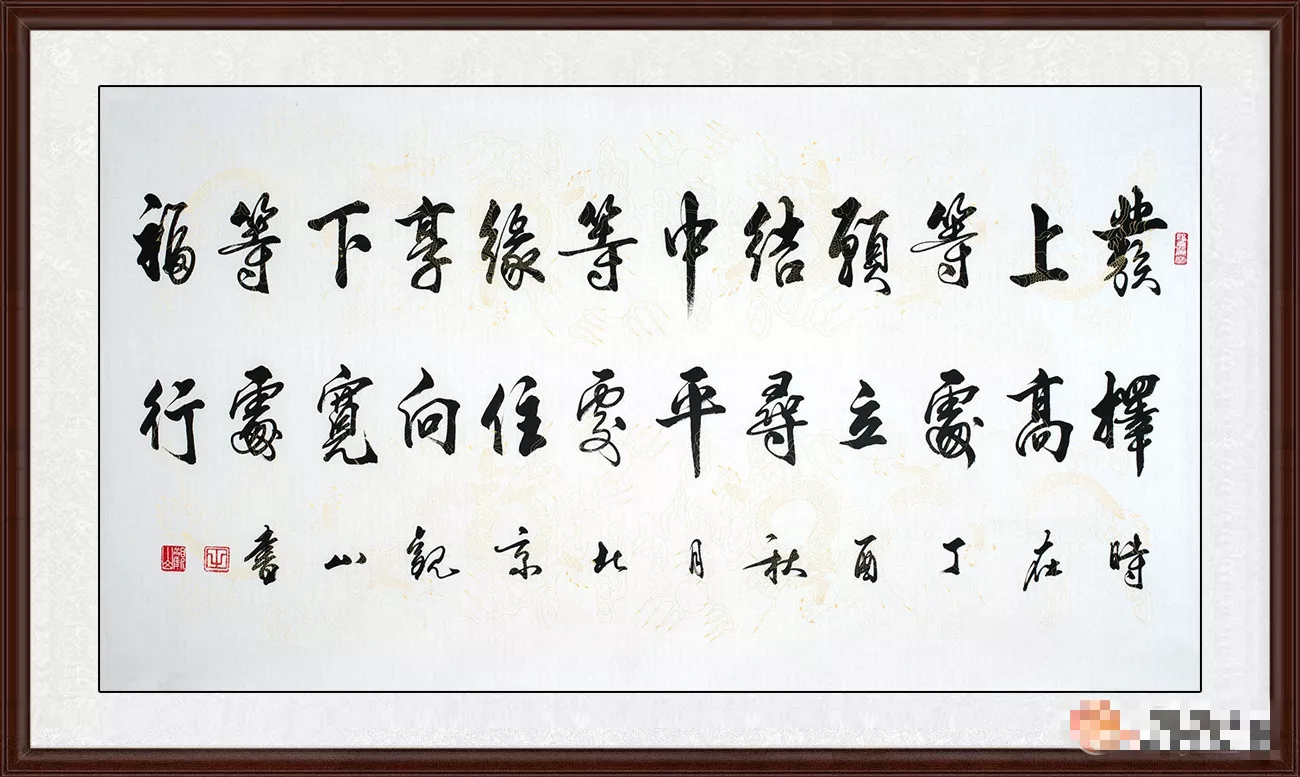 發上等願結中等緣享下等福
擇高處立尋平處住向寬處行
時在丁酉秋月北京觀山書